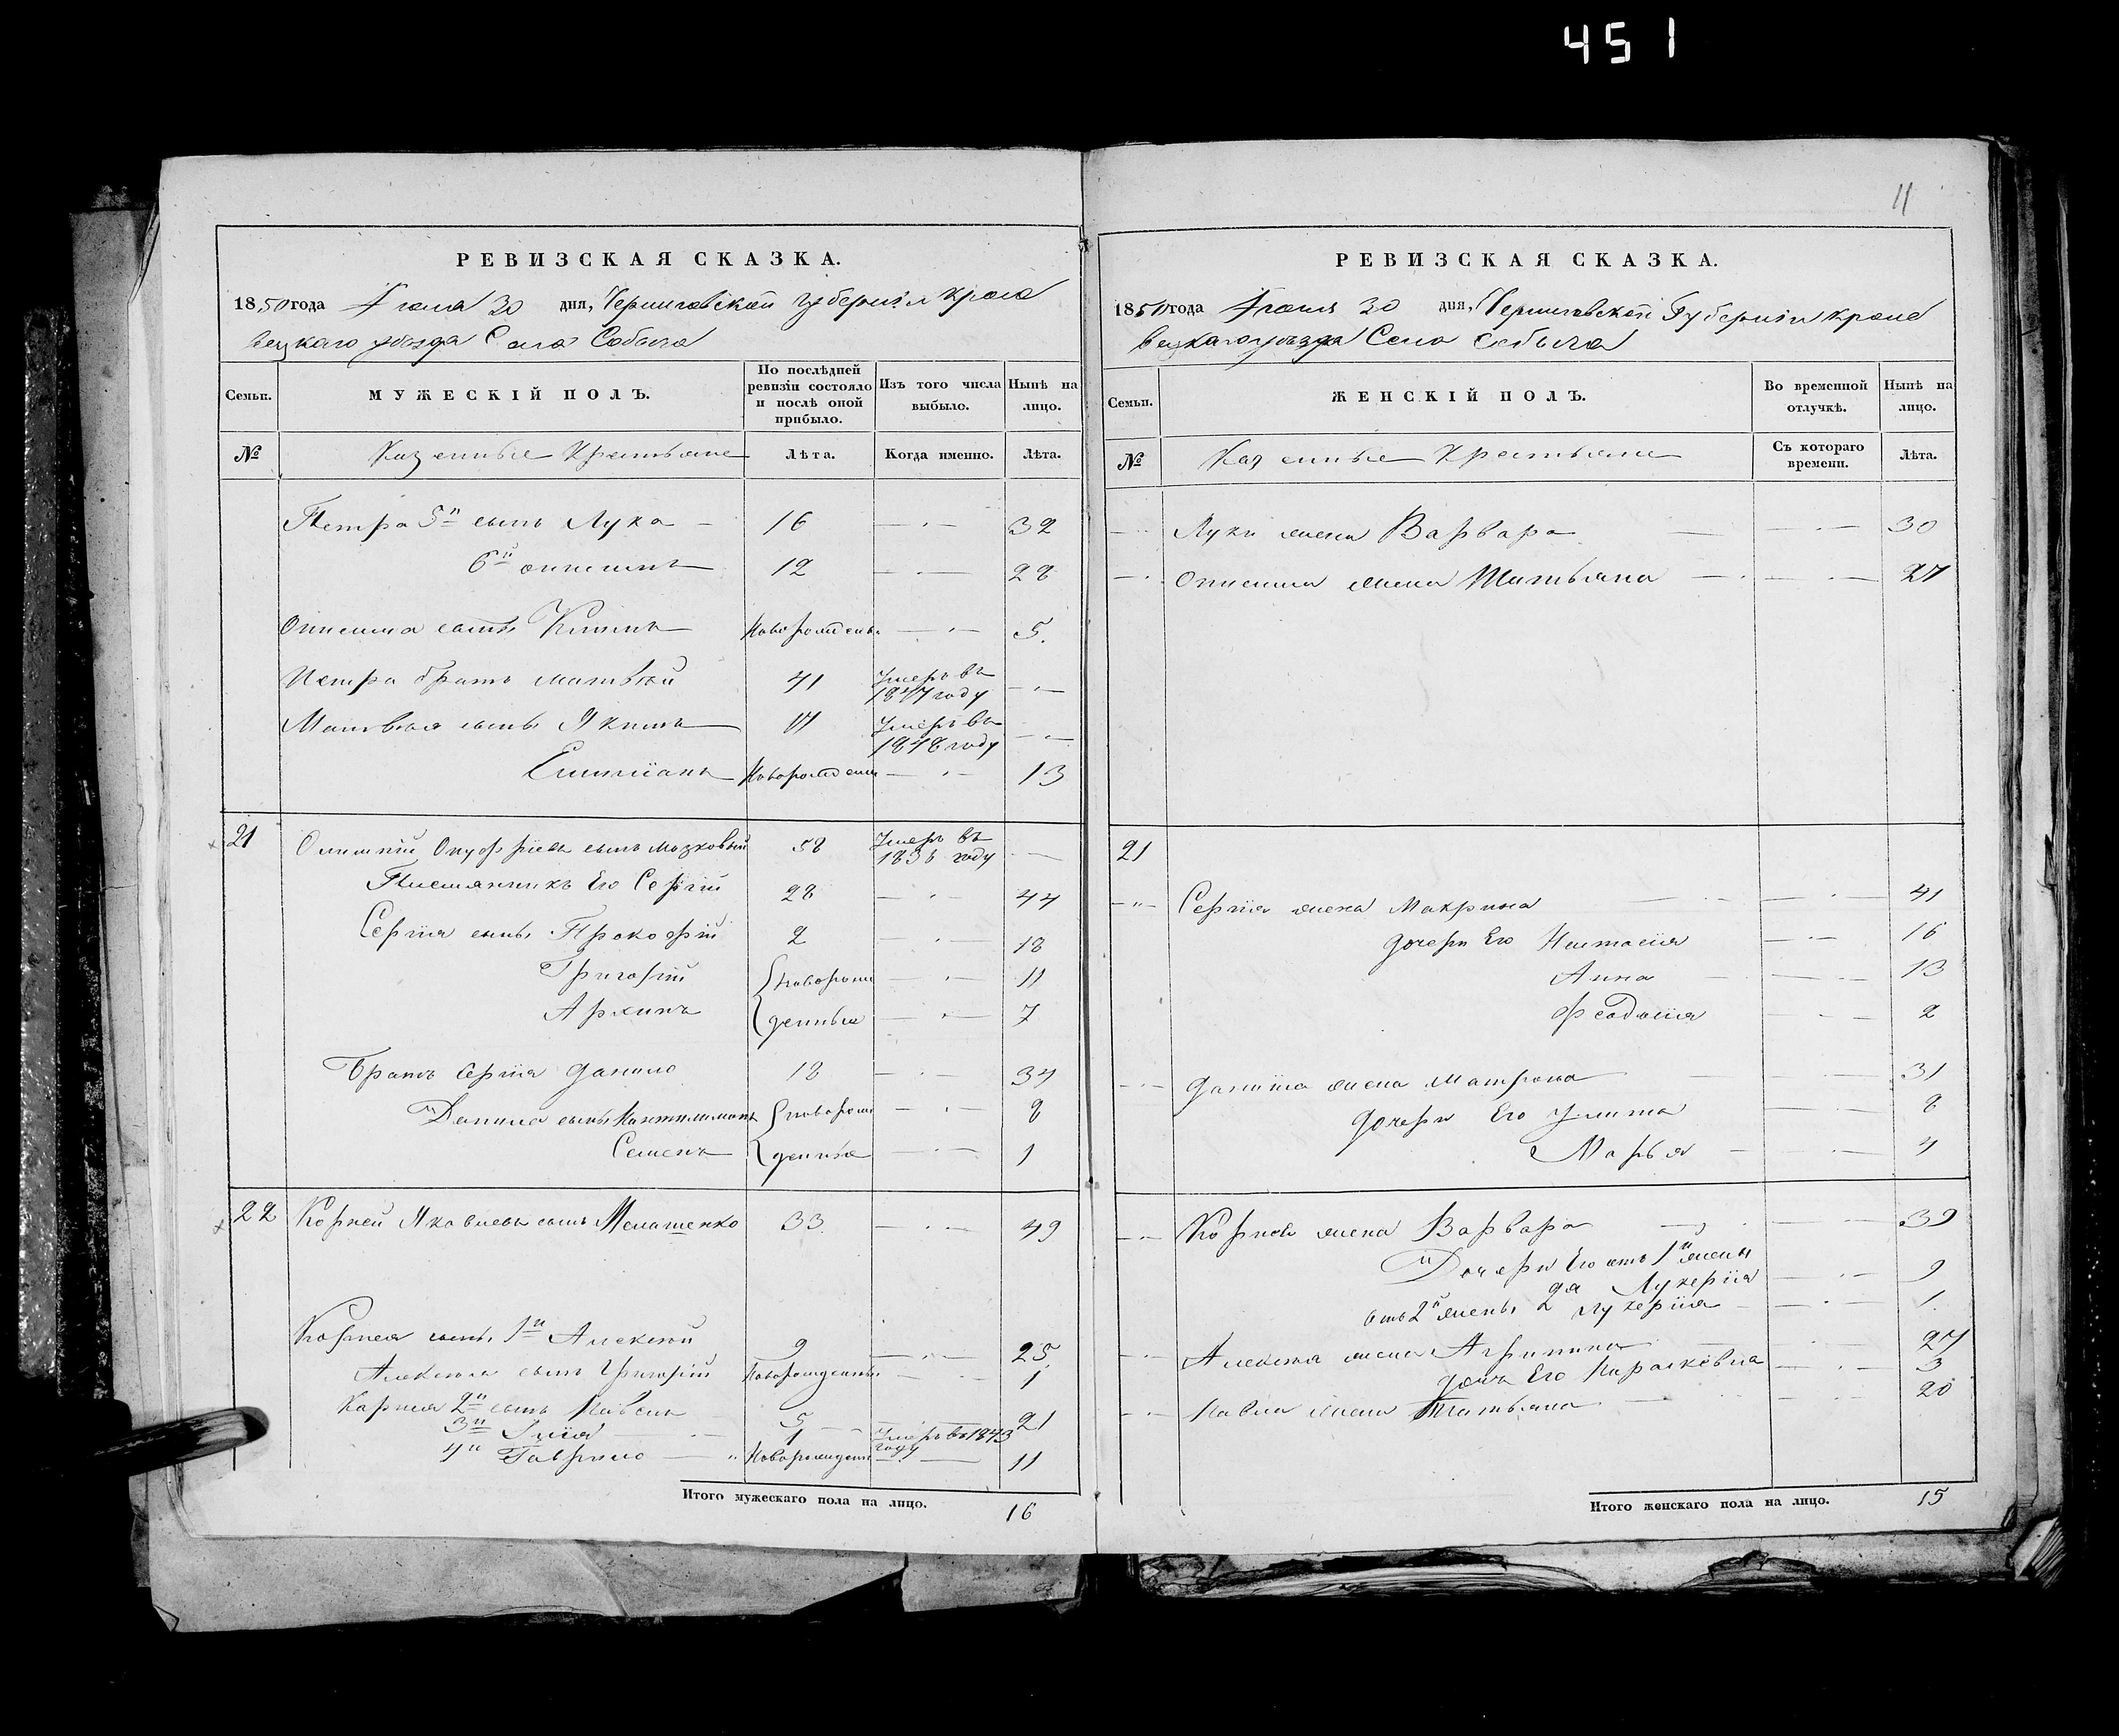 451
РЕВИЗСКАЯ СКАЗКА.
1850 года Июня 30 дня, Черниговской губернiи Кроле
вецкаго уѣзда Села Собыча
Семьи.
МУЖЕСКІЙ ПОЛЪ.
По послѣдней ревизіи состояло и послѣ оной прибыло.
Изъ того числа выбыло.
Нынѣ на лицо.
№
Казенные Крестьяне
Лѣта.
Когда именно.
Лѣта.
Петра 5й сынъ Лука 16 32
6й 12 28
сынъ Новорожденъ 5.
Петра братъ Матвѣй 41 Умеръ въ 1847 году
Матвѣя сынъ Якимъ 17 Умеръ въ 1848 году
Емилiанъ Новорожден 13
21 Онуфрiевъ сынъ 58 Умеръ въ году
Племянникъ Его Сергiй 28 44
Сергiя сынъ Прокофiй 2 18
Григорiй новорож 11
Архипъ денные 7
Братъ Сергiя Данило 18 34
Данила сынъ новорож 8
Семенъ денные 1
22 Корней Яковлевъ сынъ Мелашенко 33 49
Корнея сынъ 1й Алексѣй 9 25
Алексѣя сынъ Григорiй Новорожденны 1
Корнея 2й сынъ Павелъ 5 21
3й Iлiя 1 Умеръ въ 1843 году
4й Гаврило Новорожден 11
Итого мужескаго пола на лицо. 16
11
РЕВИЗСКАЯ СКАЗКА.
1850 года Июня 30 дня, Черниговской Губернiи Кроле
вецкаго уѣзда Села Собыча
Семьи.
ЖЕНСКІЙ ПОЛЪ.
Во временной отлучкѣ.
Нынѣ на лицо.
№
Казенные Крестьяне
Съ котораго времени.
Лѣта.
Луки жена Варвара 30
жена Татьяна 27
21
Сергiя жена Макрина 41
дочери Его Настасiя 16
Анна 13
Феодосiя 2
Данила жена Матрона 31
дочери Его Улита 8
Марья 4
Корнея жена Варвара 39
Дочери Его отъ 1й жены
2я Лукерiя 9
отъ 2й жены 2я Лукерiя 1.
Алексѣя жена Агрипина 27
дочь Его Параскевiа 3
Павла жена Татьяна 20
Итого женскаго пола на лицо. 15